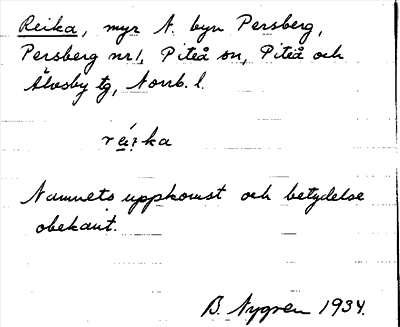 Reika, myr N. byn Persberg,
Persberg nr 1, Piteå sn, Piteå och
Älvsby tg, Norrb. l.
Namnets uppkomst och betydelse
obekant.
B. Nygren 1934.